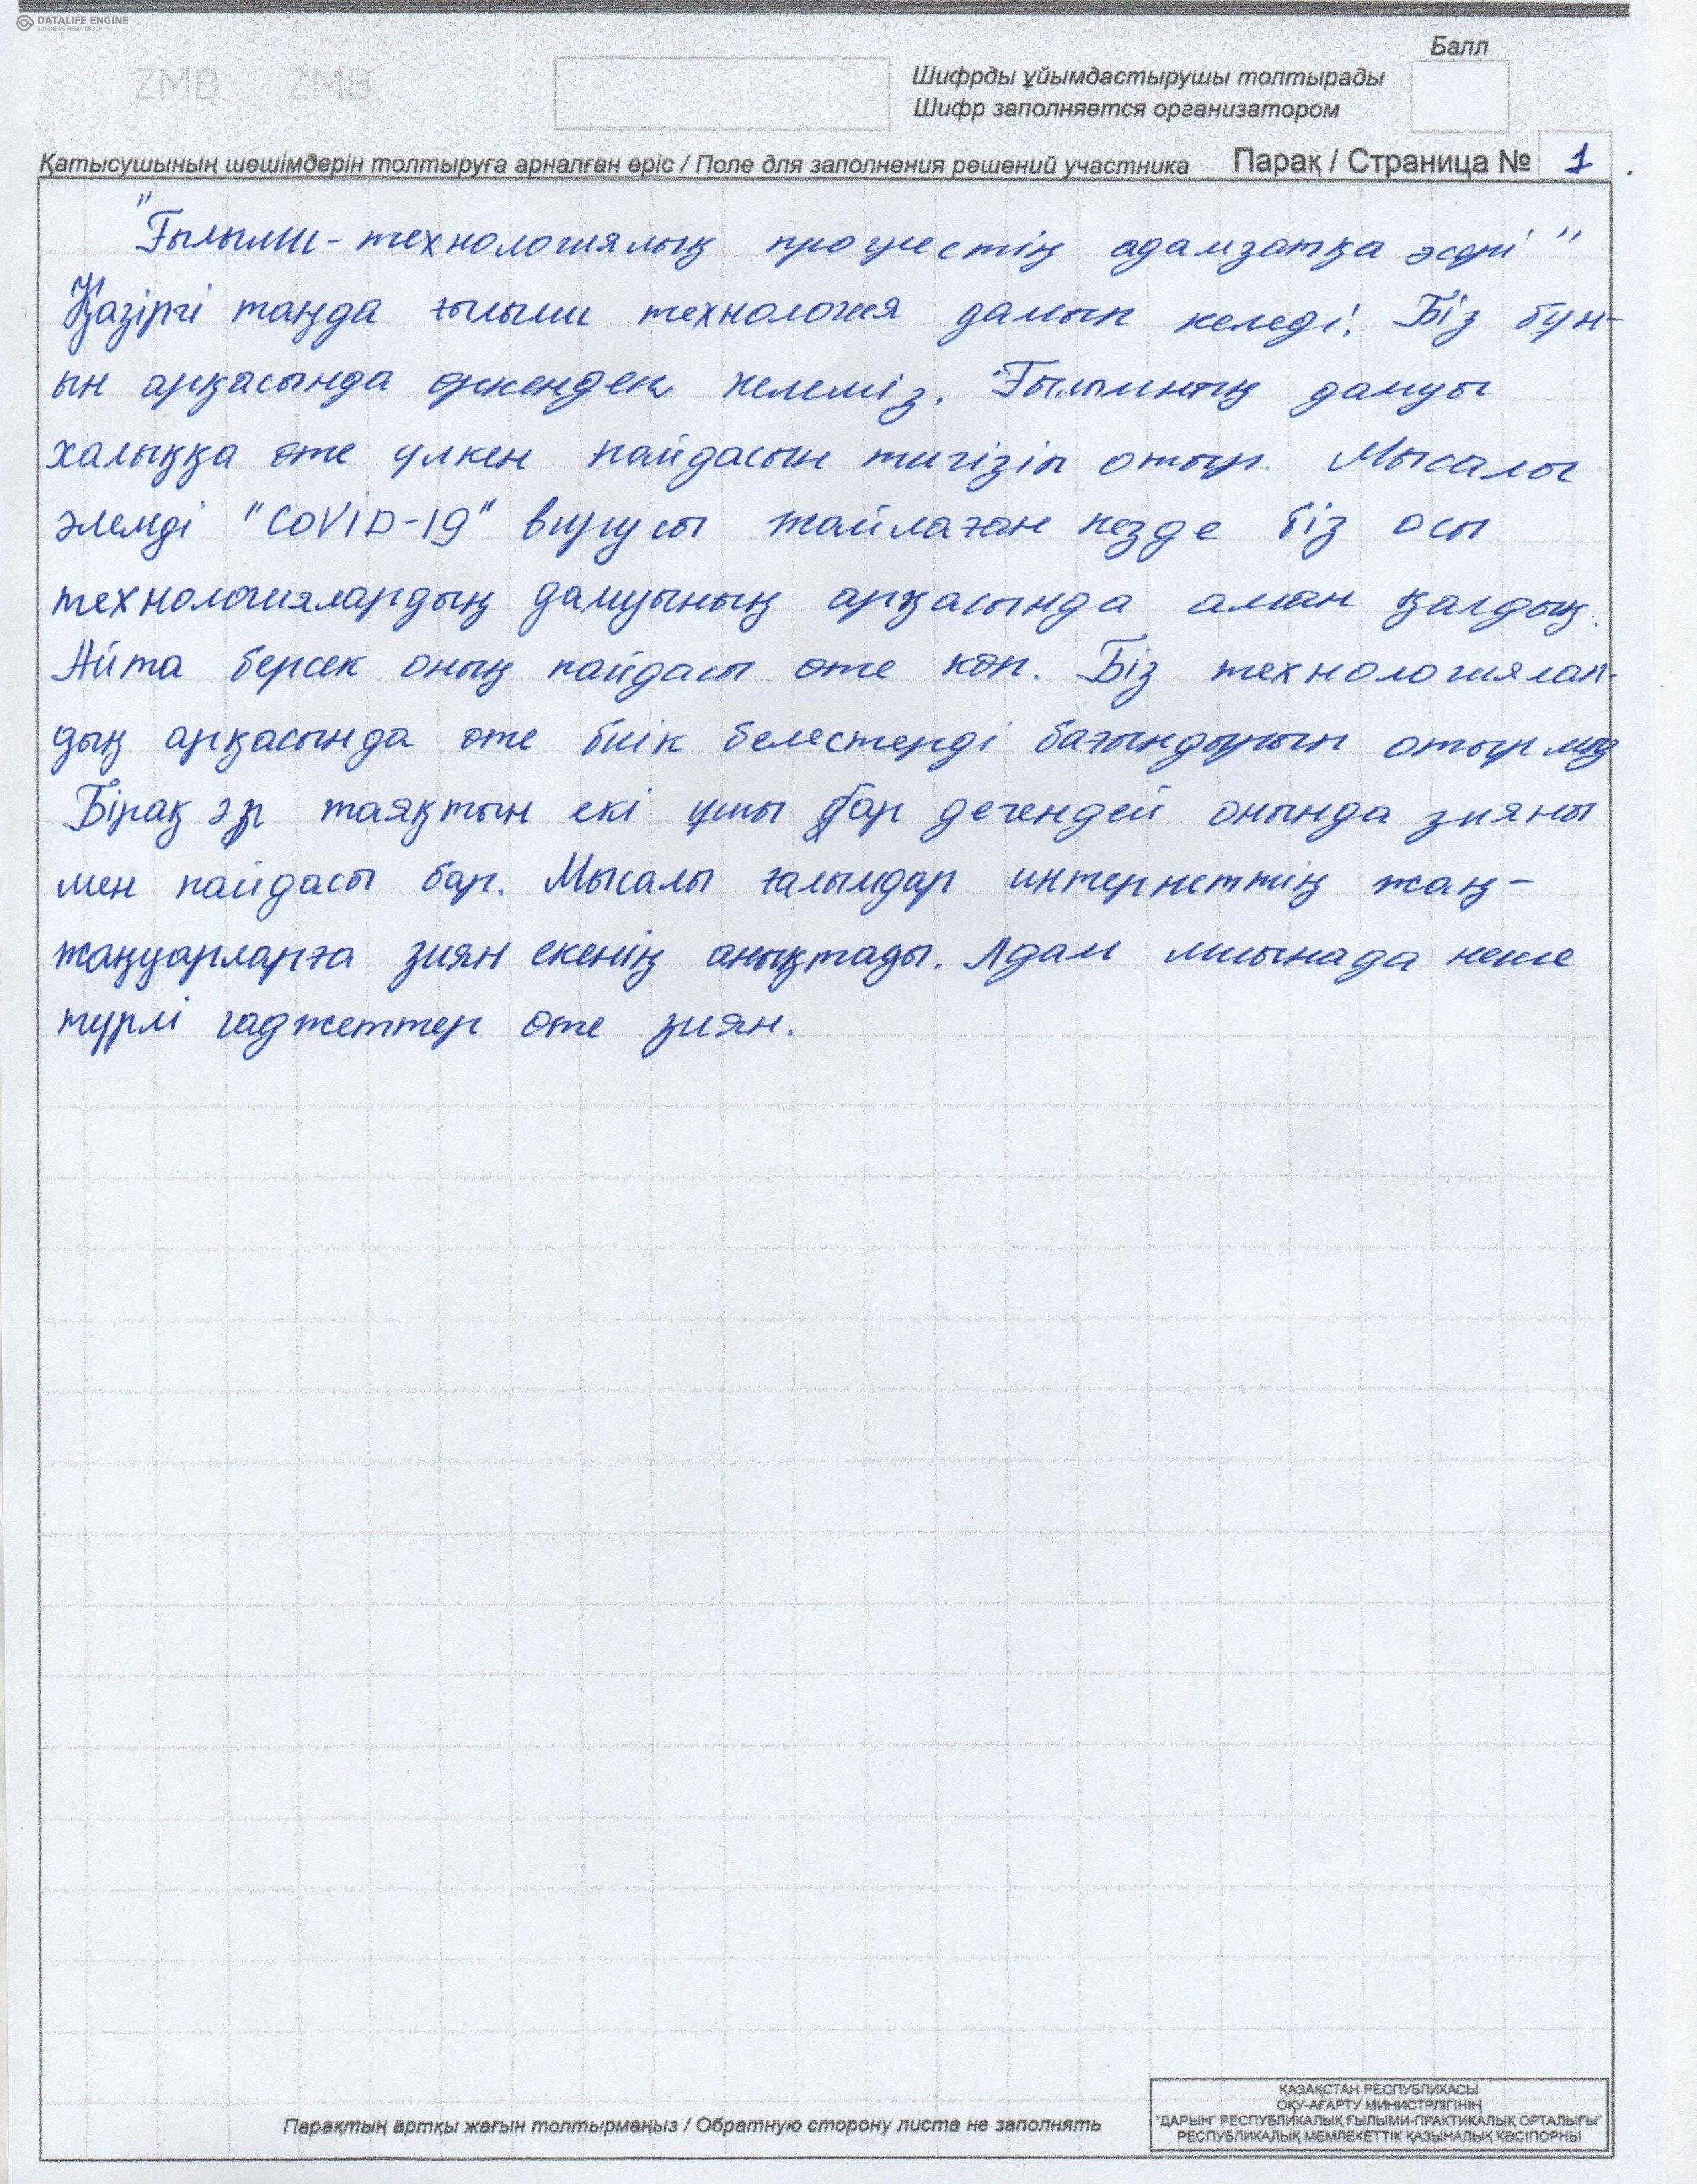 DATALIFE ENGINE
SOFTNEWS MEDIA GROUP
ZMB ZMB
Балл
Шифрды ұйымдастырушы толтырады
Шифр заполняется организатором
Қатысушының шешімдерін толтыруға арналған өріс / Поле для заполнения решений участника Парақ / Страница № 1
"Ғылыми-технологиялық прогрестің адамзатқа әсері"
Қазіргі таңда ғылыми технология дамып келеді. Біз бұн-
ын арқасында өркендеп келеміз. Ғылымның дамуы
халыққа өте үлкен пайдасын тигізіп отыр. Мысалы
әлемді "COVID-19" вирусы жайлаған кезде біз осы
технологиялардың дамуының арқасында аман қалдық.
Айта берсек оның пайдасы өте көп. Біз технологиялар-
дың арқасында өте биік белестерді бағындырып отырмыз
Бірақ әр таяқтын екі ұшы бар дегендей онында зияны
мен пайдасы бар. Мысалы ғалымдар интернеттің жан-
жануарларға зиян екенің анықтады. Адам миынада неше
түрлі гаджеттер өте зиян.
Парақтың артқы жағын толтырмаңыз / Обратную сторону листа не заполнять
ҚАЗАҚСТАН РЕСПУБЛИКАСЫ
ОҚУ-АҒАРТУ МИНИСТРЛІГІНІҢ
"ДАРЫН" РЕСПУБЛИКАЛЫҚ ҒЫЛЫМИ-ПРАКТИКАЛЫҚ ОРТАЛЫҒЫ"
РЕСПУБЛИКАЛЫҚ МЕМЛЕКЕТТІК ҚАЗЫНАЛЫҚ КӘСІПОРНЫ